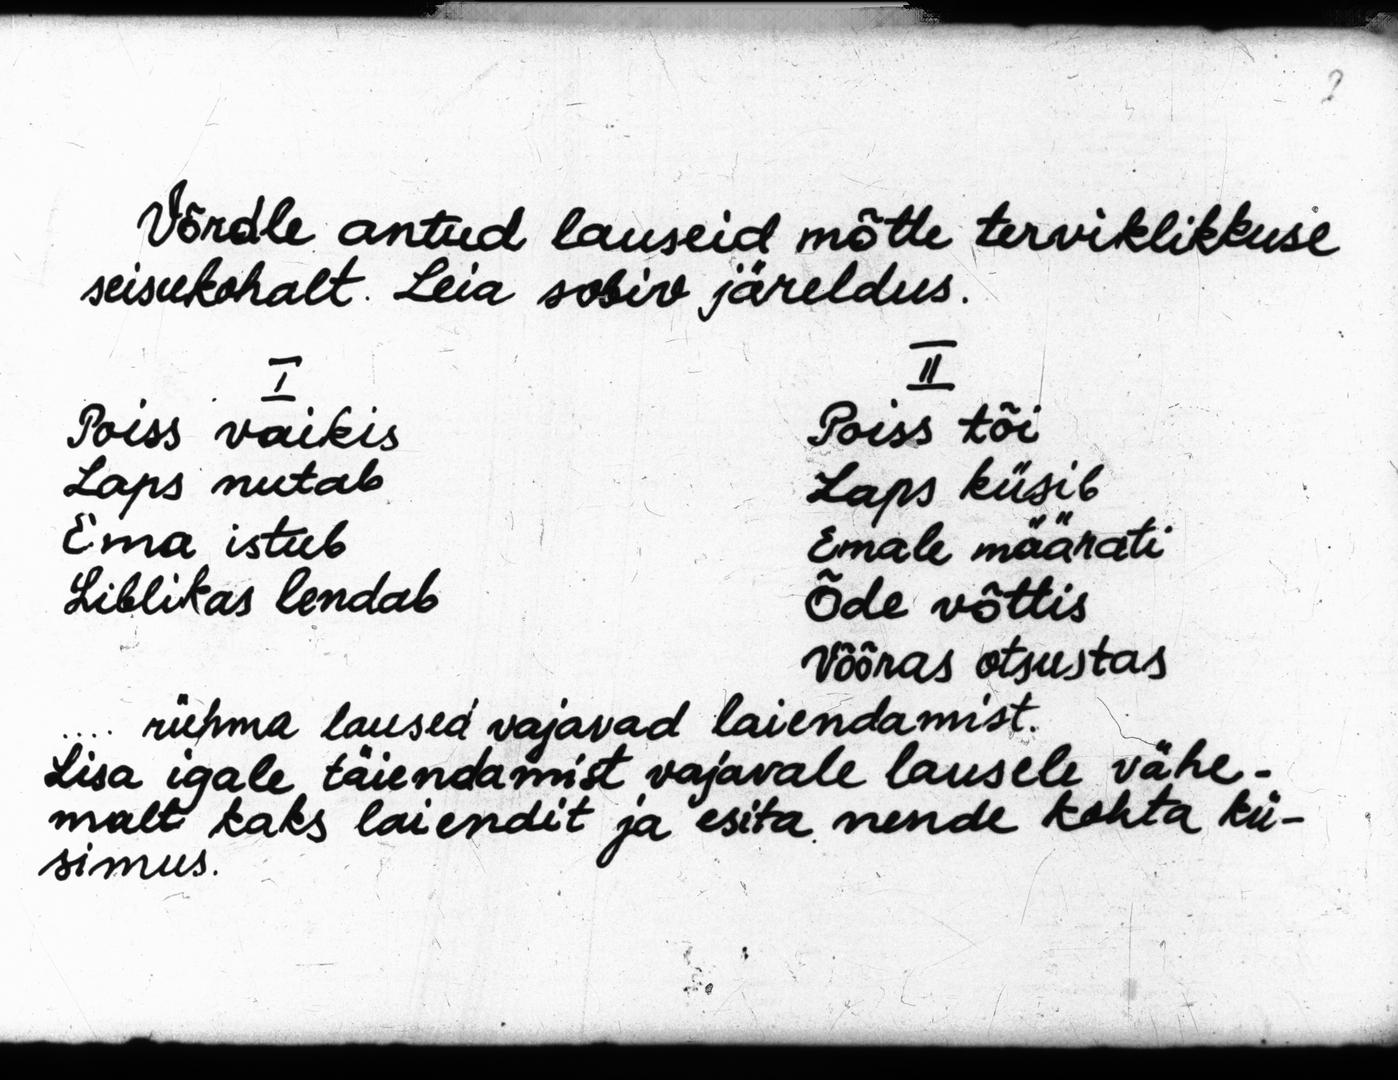 2
Võrdle antud lauseid mõtte terviklikkuse
seisukohalt. Leia sobiv järeldus.
I
Poiss vaikis
Laps nutab
Ema istub
Liblikas lendab
II
Poiss tõi
Laps küsib
Emale määrati
Õde võttis
Võõras otsustas
.... rühma laused vajavad laiendamist.
Lisa igale täiendamist vajavale lausele vähe-
malt kaks laiendit ja esita nende kohta kü-
simus.